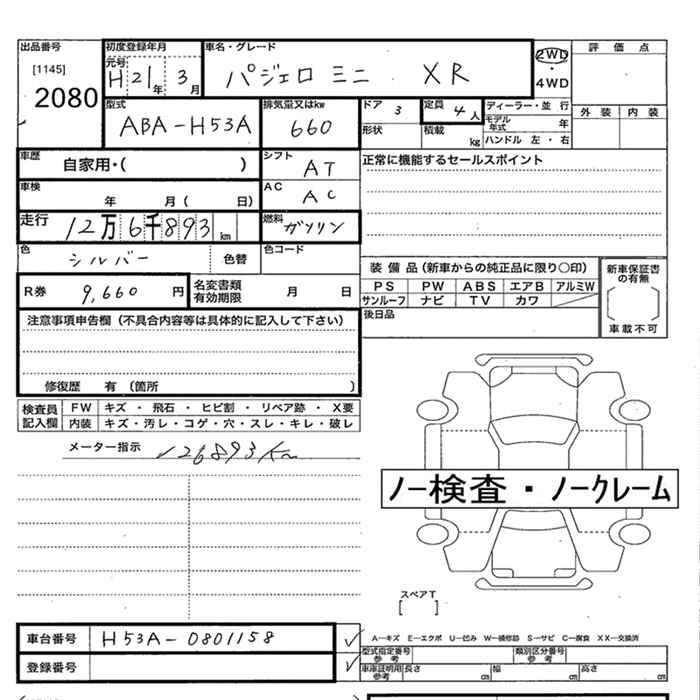 出品番号 初度登録年月 車名・グレード 2WD 評価点
[1145] 元号 H21年 3月 パジェロ ミニ XR ・
2080 4WD
型式 排気量又はkw ドア 3 定員 4人 ディーラー・並行 外装 内装
ABA-H53A 660 形状 積載 kg モデル年式 年
ハンドル 左・右
車歴 自家用・( ) シフト AT 正常に機能するセールスポイント
車検 年 月( 日) AC AC
走行 12万6千893km 燃料 ガソリン
色 シルバー 色替 色コード
装備品(新車からの純正品に限り○印) 新車保証書の有無
R券 9,660円 名変書類有効期限 月 日 PS PW ABS エアB アルミW
サンルーフ ナビ TV カワ
注意事項申告欄(不具合内容等は具体的に記入して下さい) 後日品 車載不可
修復歴 有(箇所 )
検査員 FW キズ・飛石・ヒビ割・リペア跡・X要
記入欄 内装 キズ・汚レ・コゲ・穴・スレ・キレ・破レ
メーター指示 126893Km
ノー検査・ノークレーム
スペアT
[ ]
車台番号 H53A-0801158
A−キズ E−エクボ U−凹み W−補修跡 S−サビ C−腐食 XX−交換済
登録番号 型式指定番号 参考 類別区分番号 参考
車庫証明用 参考 長さ cm 幅 cm 高さ cm